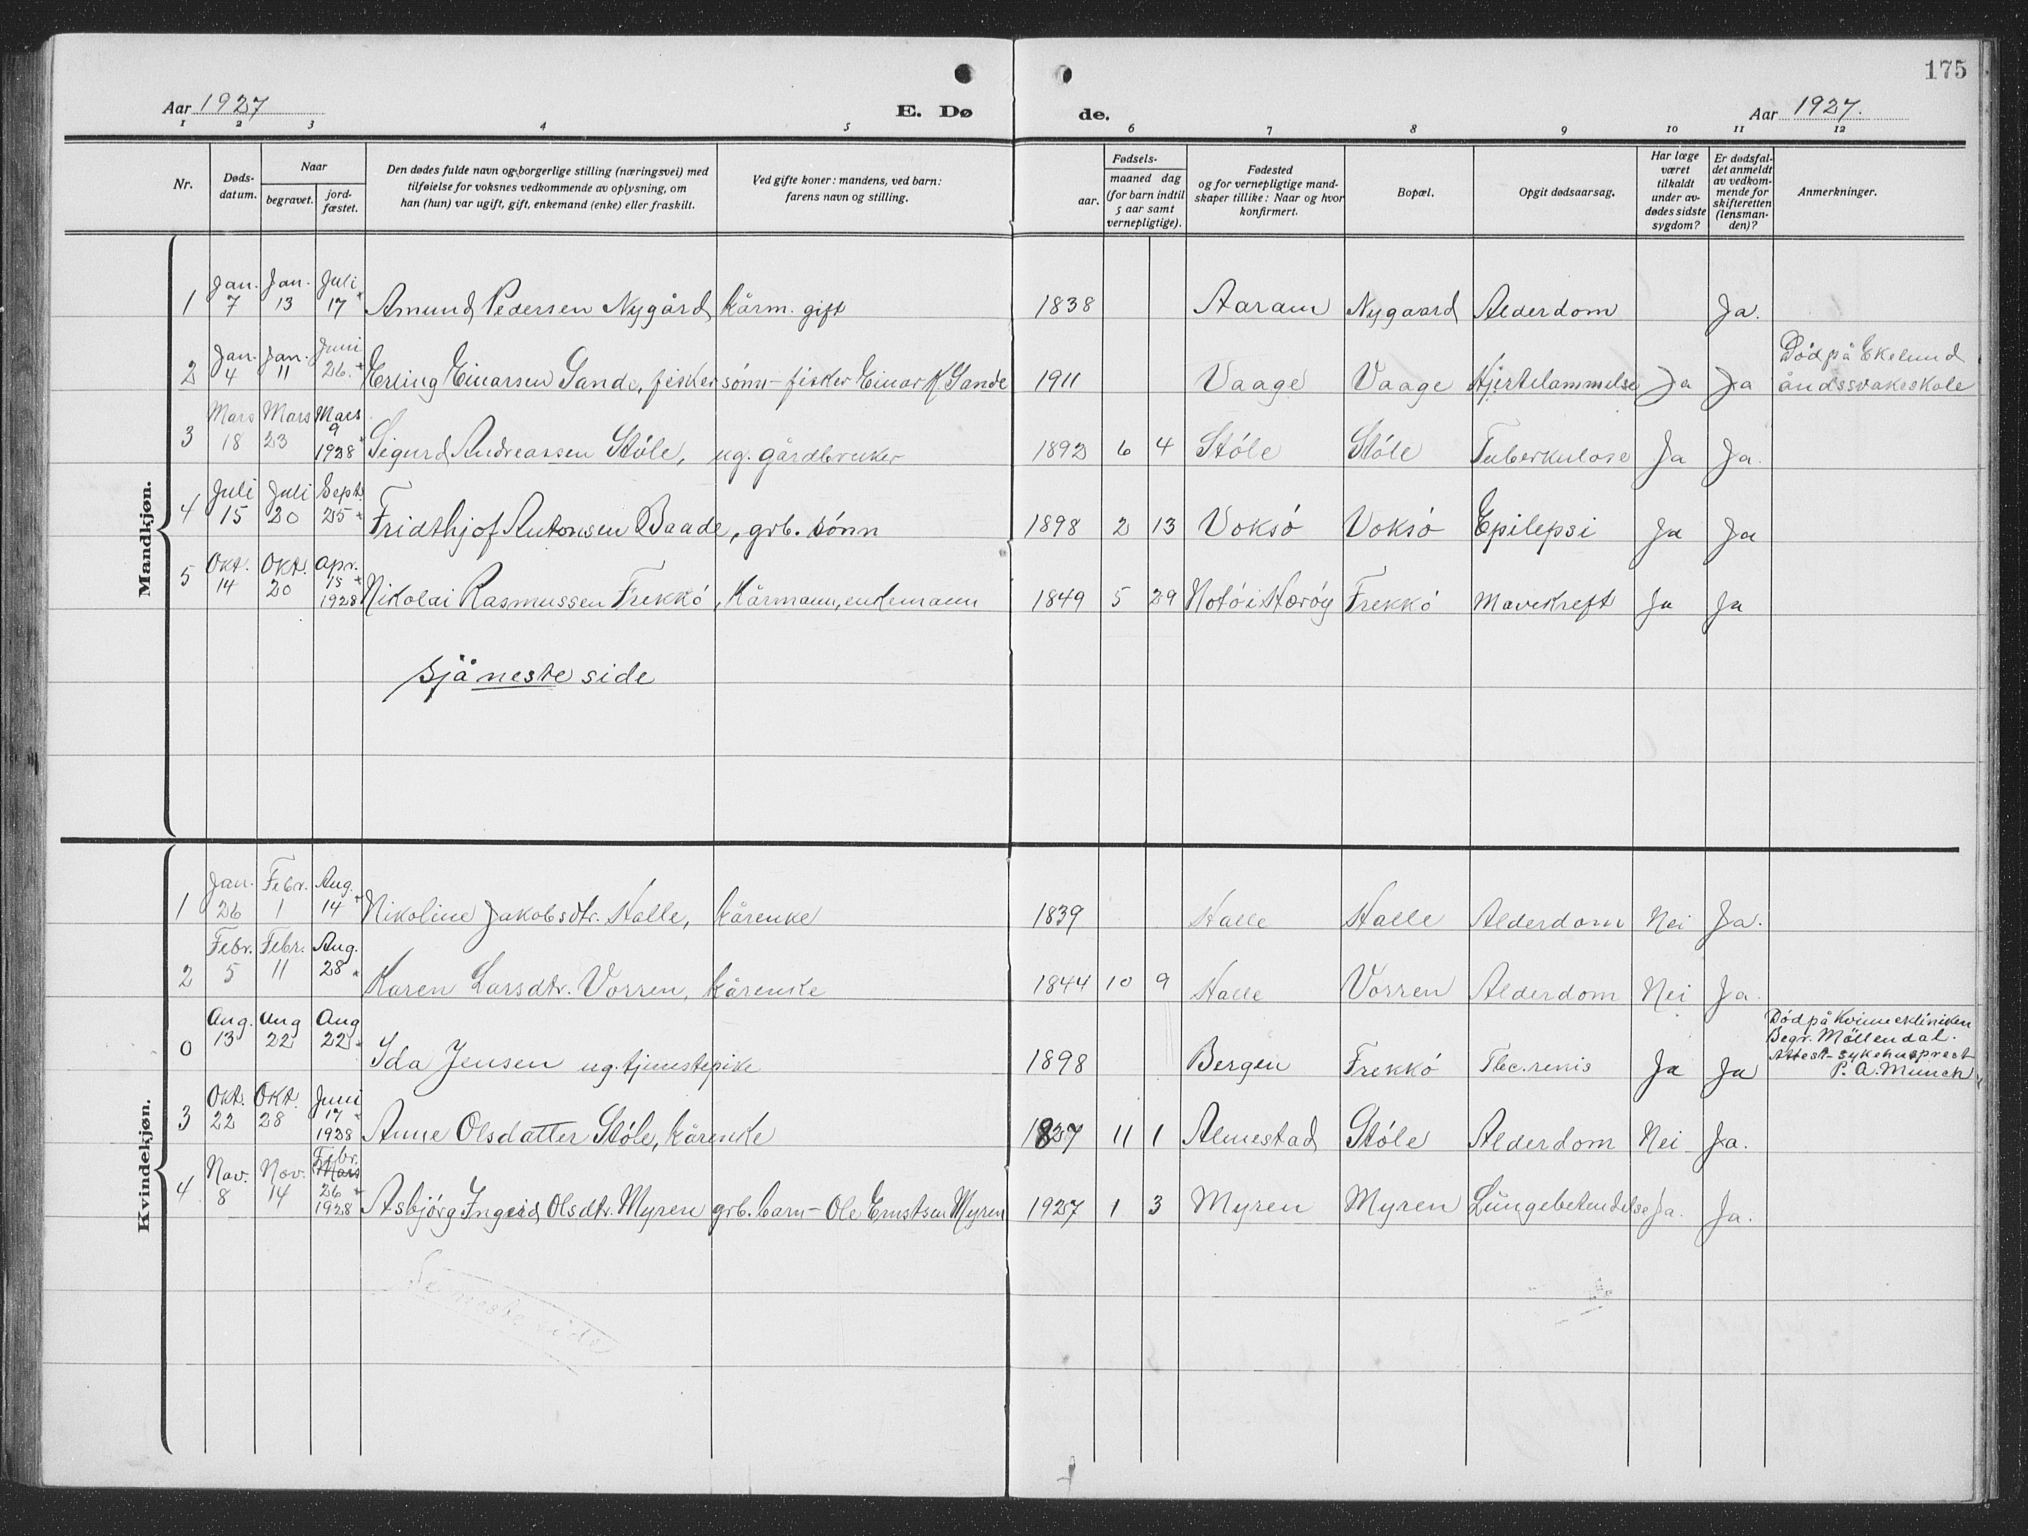 175
Aar 1927 E. Dø de. Aar 1927.
1 2 3 4 5 6 7 8 9 10 11 12
Nr. Døds-datum. Naar begravet. jord-fæstet. Den dødes fulde navn og borgerlige stilling (næringsvei) med tilføielse for voksnes vedkommende av oplysning, om han (hun) var ugift, gift, enkemand (enke) eller fraskilt. Ved gifte koner: mandens, ved barn: farens navn og stilling. Fødsels- aar. maaned dag (for barn indtil 5 aar samt vernepligtige). Fødested og for vernepligtige mand-skaper tillike: Naar og hvor konfirmert. Bopæl. Opgit dødsaarsag. Har læge været tilkaldt under av-dødes sidste sygdom? Er dødsfal-det anmeldt av vedkom-mende for skifteretten (lensman-den)? Anmerkninger.
Mandkjøn.
1 Jan. 7 Jan. 13 Juli 17 Amund Pedersen Nygård, kårm. gift 1838 Aaram Nygaard Alderdom Ja.
2 Jan. 4 Jan. 11 Juni 26. Erling Einarsen Sande, fisker sønn - fisker Einar K Sande 1911 Vaage Vaage Hjertelammelse Ja Ja Död på Ekelund åndssvakeskole
3 Mars 18 Mars 23 Mars 9 1928 Sigurd Andreassen Støle, ug. gårdbruker 1892 6 4 Støle Støle Tuberkulose Ja Ja.
4 Juli 15 Juli 20 Sept. 25 Fridthjof Antonsen Baade, grb. sönn 1898 2 13 Voksö Voksö Epilepsi Ja Ja
5 Okt. 14 Okt. 20 Apr. 15 1928 Nikolai Rasmussen Frekkö, Kårmann, enkemann 1849 5 29 Notö i Heröy Frekkö Mavekreft Ja Ja
sjå neste side
Kvindekjøn.
1 Jan. 26 Febr. 1 Aug. 14 Nikoline Jakobsdtr. Halle, kårenke 1839 Halle Halle Alderdom Nei Ja.
2 Febr. 5 Febr. 11 Aug. 28 Karen Larsdtr. Vorren, kårenke 1844 10 9 Halle Vorren Alderdom Nei Ja.
0 Aug. 13 Aug 22 Aug 22 Ida Jensen ug. tjenestepike 1898 Bergen Frekkö Tbc. renis Ja Ja Död på Kvinneklinikken Begr. Möllendal. Attest - sykehusprest P. A. Munch
3 Okt. 22 Okt. 28 Juni 17 1928 Anne Olsdatter Støle, kårenke 1837 11 1 Almestad Støle Alderdom Nei Ja.
4 Nov. 8 Nov. 14 Febr. Mars 26 1928 Asbjörg Ingrid Olsdtr. Myren grb. barn - Ole Ernstsen Myren 1927 1 3 Myren Myren Lungebetendelse Ja. Ja.
Se neste side